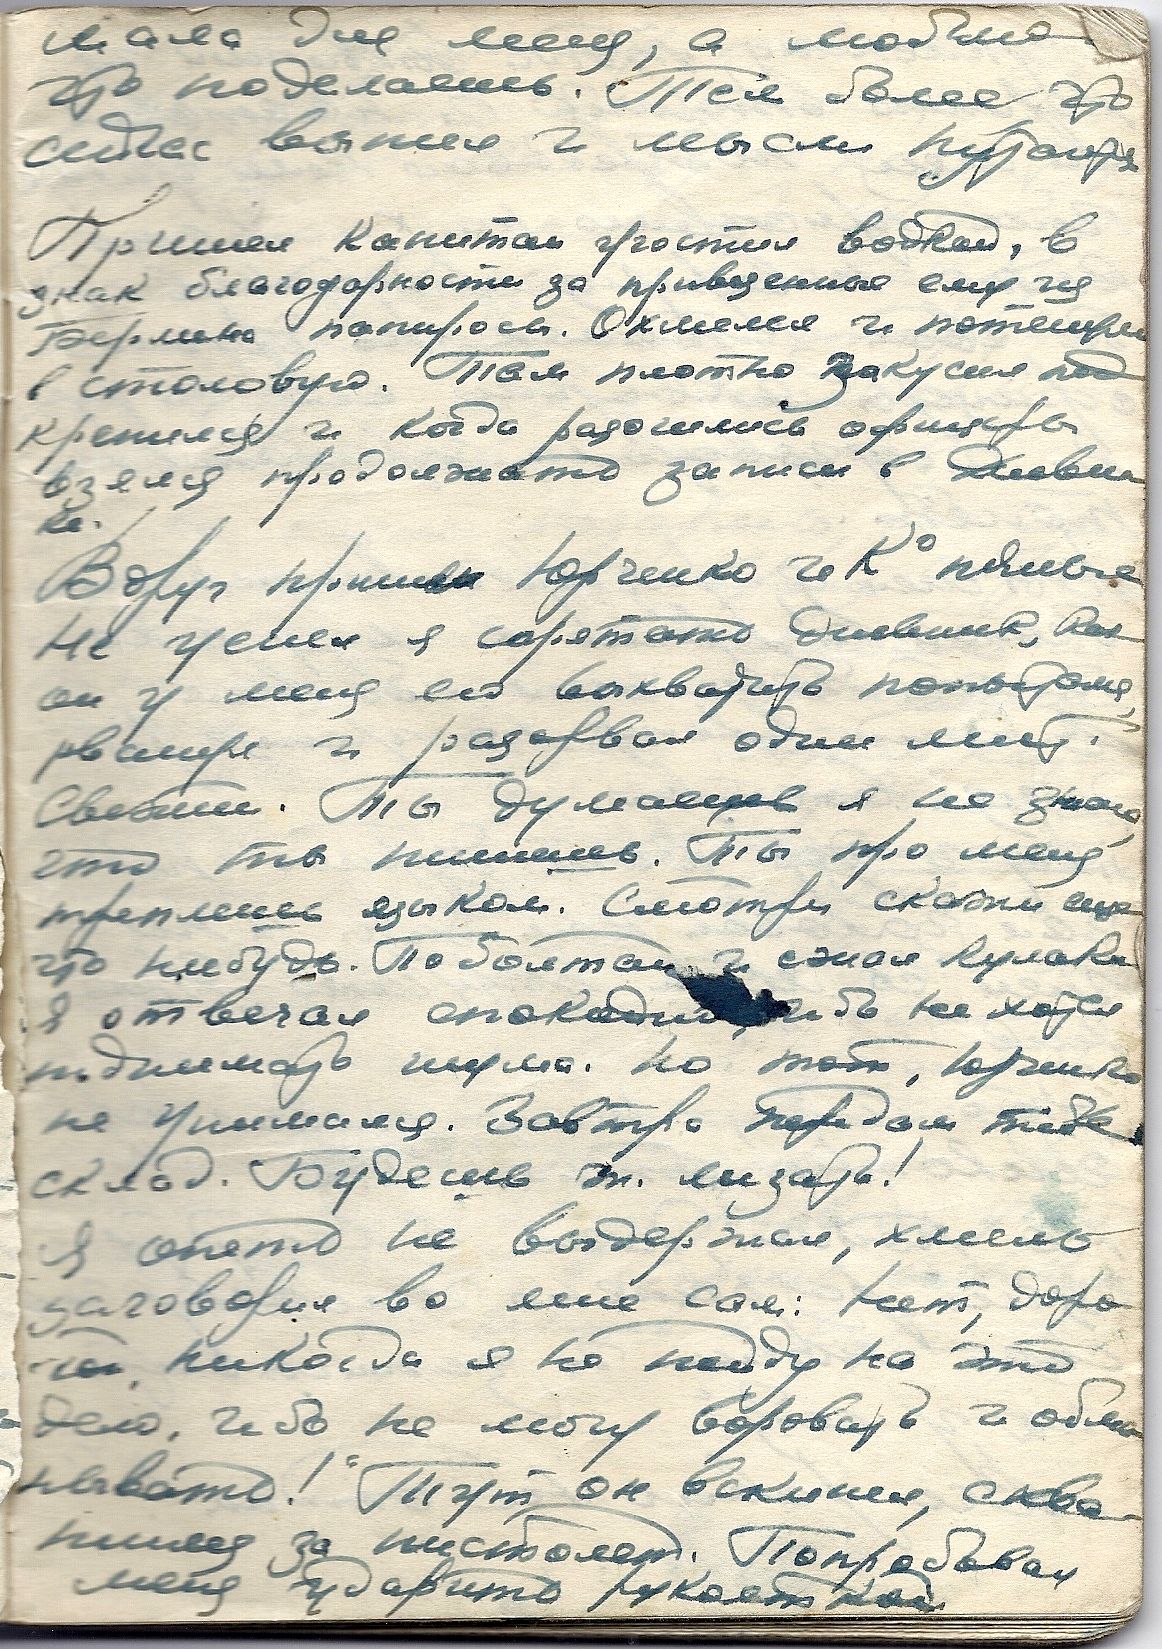 мала для меня, а
что поделаешь. Тем более что
сейчас выпил и мысли путаются
Пришел капитан угостил водкой, в
знак благодарности за привезенные ему из
Берлина папиросы. Охмелел и
в столовую. Там плотно закусил под
крепился и когда разошлись офицеры
взялся продолжать записи в дневни
ке.
Вдруг пришли Юрченко и К° пьяные
Не успел я спрятать дневник, как
он у меня его выхватить попытался,
рванул и разорвал один лист.
Схватил. Ты думаешь я не знаю,
что ты пишешь. Ты про меня
треплешь языком. Смотри скажи еще
что нибудь. Поболтай и сжал кулаки
Я отвечал спокойно, ибо не хотел
подымать шума. Но тот, Юрченко
не унимался. Завтра передам тебе
склад. Будешь ж. лизать!
Я опять не выдержал, хмель
заговорил во мне сам: Нет, доро
гой, никогда я не пойду на это
дело, ибо не могу воровать и обма
нывать!" Тут он вскипел, схва
тился за пистолет. Попробовал
меня ударить рукояткой